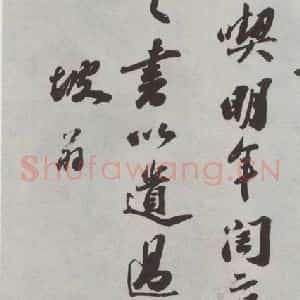 喫明年閏
書以遺過
坡翁
Shufawang.CN